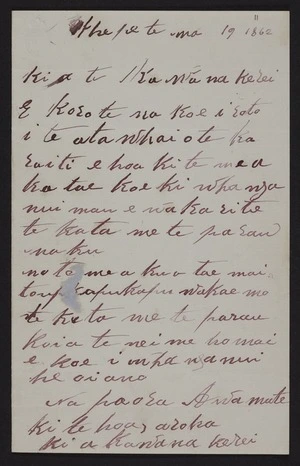 11
19 1862
Ki a te Kawana kerei
E Koro te na koe i roto
i te atawhai o te Ka
raiti e hoa ki te mea
ka tae koe ki whanga
nui mau e waka rite
te kata me te parau
naku
no te mea kua tae mai
tou kapukapu wakae mo
te kata me te parau
Koia te nei me homai
e koe i whanganui
he oiano
Na paora Awamate
ki te hoa aroha
ki a kawana kerei